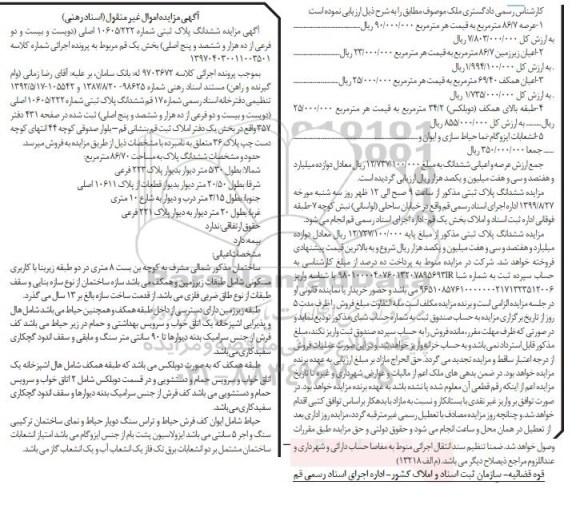 آگهی مزایده اموال غیر منقول (اسناد رهنی)
آگهی مزایده ششدانگ پلاک ثبتی شماره ۱۰۶۰۵/۲۲۲ اصلی (دویست و بیست و دو
فرعی از ده هزار و ششصد و پنج اصلی) بخش یک قم مربوط به پرونده اجرائی شماره کلاسه
۱۳۹۷۰۴۰۳۰۰۱۱۰۰۳۵۰۱
بموجب پرونده اجرائی کلاسه ۹۷۰۳۶۷۲ له: بانک سامان، بر علیه: آقای رضا زمانی (وام
گیرنده و راهن) مستند اسناد رهنی شماره ۹۸۶۲۵-۱۳۸۷/۸/۲۰ و ۱۰۵۵۴۲-۱۳۹۲/۵/۱۷
تنظیمی دفترخانه اسناد رسمی شماره ۱۷ قم ششدانگ پلاک ثبتی شماره ۱۰۶۰۵/۲۲۲ اصلی
(دویست و بیست و دو فرعی از ده هزار و ششصد و پنج اصلی) ثبت شده در صفحه ۴۳۱ دفتر
۳۵۷ واقع در بخش یک دفتر املاک ثبت قم بنشانی قم – بلوار صدوقی کوچه ۴۴ انتهای کوچه
دست چپ پلاک ۳۶ متعلق به نامبرده با مشخصات ذیل از طریق مزایده به فروش میرسد.
حدود و مشخصات ششدانگ پلاک به مساحت ۸۶/۷۰ مترمربع:
شمالا: بطول ۵/۳۰ متر دیوار بدیوار پلاک ۲۲۳ فرعی
شرقا: بطول ۲۰/۵۰ متر دیوار بدیوار قطعات از پلاک ۱۰۶۱۱ اصلی
جنوبا: بطول ۳/۱۵ متر درب و دیوار به شارع ۱۰ متری
غربا: بطول ۲۰ متر دیوار به دیوار پلاک ۲۲۱ فرعی
حقوق ارتفاقی: ندارد
بیمه: دارد
مشخصات اعیانی:
ساختمان مذکور شمالی مشرف به کوچه بن بست ۸ متری در دو طبقه زیربنا با کاربری
مسکونی شامل طبقات زیرزمین و همکف می باشد سازه ساختمان از نوع سازه بنایی و سقف
طبقات از نوع طاق ضربی فلزی می باشد. از قدمت ساخت سازه بالغ بر ۱۳ سال می گذرد.
طبقه زیرزمین دارای دسترسی از داخل طبقه همکف و همچنین حیاط می باشد شامل هال
و پذیرایی آشپزخانه یک اتاق خواب و سرویس بهداشتی و حمام در زیر حیاط می باشد کف
فرش از جنس سرامیک بدنه دیوارها تا ۹۰ سانتی متر سنگ و مابقی و سقف اندود گچکاری
سفیدکاری می باشد.
طبقه همکف که به صورت دوبلکس می باشد که طبقه همکف شامل هال آشپزخانه یک
اتاق خواب و سرویس حمام و دستشویی و در قسمت دوبلکس شامل ۲ اتاق خواب و سرویس
حمام و دستشویی می باشد کف فرش از جنس سرامیک بدنه دیوارها و سقف اندود گچکاری
سفیدکاری می باشد.
حیاط شامل ایوان کف فرش حیاط و تراس سنگ دیوار حیاط و نمای ساختمان ترکیبی
سنگ و آجر ۵ سانتی می باشد ایزولاسیون پشت بام از جنس ایزوگام می باشد امتیاز انشعابات
ساختمان مشتمل بر دو انشعابات برق تک فاز یک انشعاب آب و یک انشعاب گاز می باشد.
کارشناس رسمی دادگستری ملک موصوف مطابق را به شرح ذیل ارزیابی نموده است
۱-عرصه ۸۶/۷ مترمربع به قیمت هر مترمربع ۹۰/۰۰۰/۰۰۰ ریال
به ارزش کل ۷/۸۰۳/۰۰۰/۰۰۰ ریال
۲-اعیان زیرزمین ۸۶/۷ مترمربع به قیمت هر مترمربع ۲۳/۰۰۰/۰۰۰ ریال
به ارزش کل ۱/۹۹۴/۱۰۰/۰۰۰ ریال
۳-اعیان همکف ۶۹/۴۰ مترمربع به قیمت هر مترمربع ۲۵/۰۰۰/۰۰۰ ریال
به ارزش کل ۱/۷۳۵/۰۰۰/۰۰۰ ریال
۴-طبقه بالای همکف (دوبلکس) ۳۴/۲ مترمربع به قیمت هر مترمربع ۲۵/۰۰۰/۰۰۰
ریال به ارزش کل ۸۵۵/۰۰۰/۰۰۰ ریال
۵-انشعابات ایزوگام نما حیاط سازی و ایوان و
جمعا ۳۵۰/۰۰۰/۰۰۰ ریال
جمع ارزش عرصه و اعیانی ششدانگ به مبلغ ۱۲/۷۳۷/۱۰۰/۰۰۰ ریال معادل دوازده میلیارد
و هفتصد و سی و هفت میلیون و یکصد هزار ریال ارزیابی گردیده است.
مزایده ششدانگ پلاک ثبتی مذکور از ساعت ۹ صبح الی ۱۲ ظهر روز سه شنبه مورخه
۱۳۹۹/۸/۲۷ اداره اجرای اسناد رسمی قم واقع در خیابان ساحلی (لواسانی) نبش کوچه ۷-طبقه
فوقانی اداره ثبت اسناد و املاک بخش یک قم-اداره اجرای اسناد رسمی قم انجام می شود.
مزایده ششدانگ پلاک ثبتی مذکور از مبلغ پایه ۱۲/۷۳۷/۱۰۰/۰۰۰ ریال معادل دوازده
میلیارد و هفتصد و سی و هفت میلیون و یکصد هزار ریال شروع و به بالاترین قیمت پیشنهادی
فروخته خواهد شد. شرکت در مزایده منوط به پرداخت ده درصد از مبلغ کارشناسی به
حساب سپرده ثبت به شماره شبا با شناسه واریز
می باشد و حضور خریدار یا نماینده قانونی او
در جلسه مزایده الزامی است و برنده مزایده مکلف است مابه التفاوت مبلغ فروش را ظرف مدت ۵
روز از تاریخ برگزاری مزایده به حساب صندوق ثبت به شماره حساب شبای مذکور تودیع نماید و
در صورتی که ظرف مهلت مقرر، مانده فروش را به حساب سپرده صندوق ثبت واریز نکند، مبلغ
مذکور قابل استرداد نمی باشد و به حساب خزانه واریز خواهد شد و در این صورت عملیات فروش
از درجه اعتبار ساقط و مزایده تجدید می گردد. حق الحراج مازاد بر مبلغ ارزیابی به عهده برنده
مزایده خواهد بود. در ضمن بدهی های ملک اعم از مالیات و عوارض شهرداری و غیره تا تاریخ
مزایده اعم از اینکه رقم قطعی آن معلوم شده یا نشده باشد به عهده برنده مزایده خواهد بود. در
صورت توافق بر واریز غیر نقدی با بستانکار و نسبت به مازاد با بدهکار بر اساس توافق کتبی اقدام
خواهد شد و چنانچه روز مزایده مصادف با تعطیل رسمی غیر مترقبه گردد، مزایده روز اداری بعد
از تعطیل در همان محل و ساعت انجام می شود و حقوق دولتی و حق مزایده طبق مقررات
وصول خواهد شد. ضمنا تنظیم سند انتقال اجرائی منوط به مفاصا حساب دارائی و شهرداری و
عنداللزوم مراجع ذیصلاح دیگر می باشد. (م الف ۱۳۲۱۸)
قوه قضائیه- سازمان ثبت اسناد و املاک کشور- اداره اجرای اسناد رسمی قم